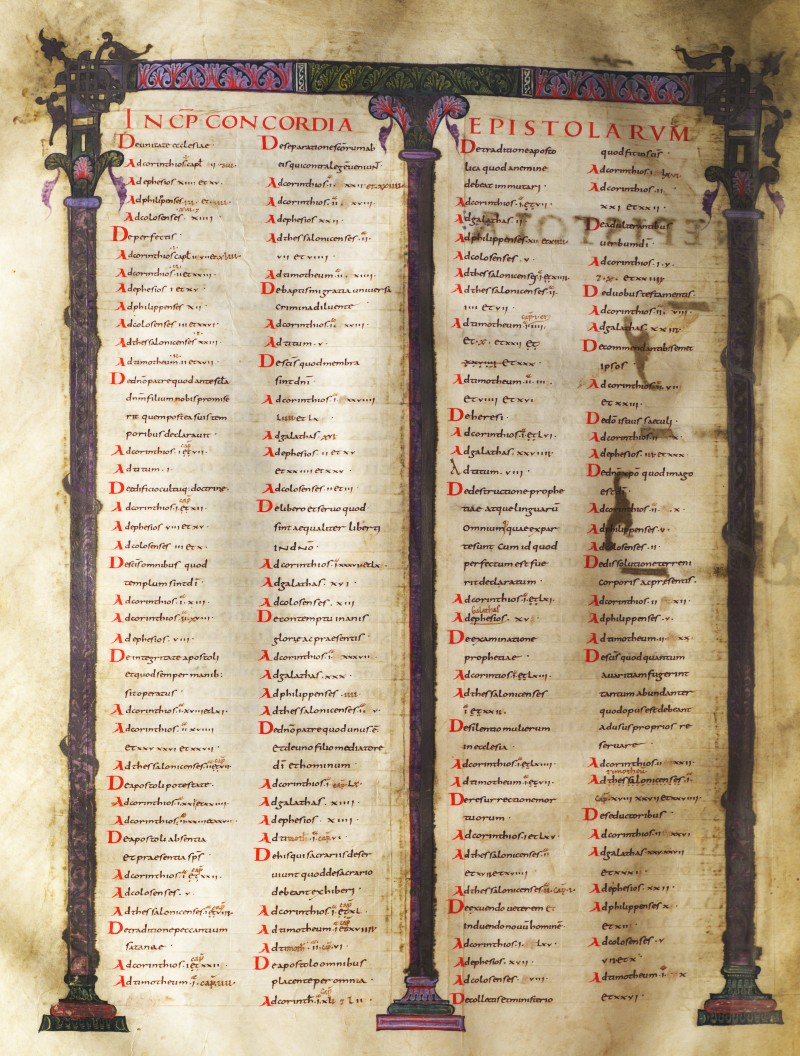 INCP CONCORDIA EPISTOLARVM
De unitate ecclesiae
Ad corinthios capl
Ad ephesios xiiii et xv.
Ad philipenses
Ad colosenses xiiii
De perfectis
Ad corinthios capl
Ad corinthios ii et xxiii
Ad ephesios i et xv
Ad philippenses xii
Ad colosenses iii et xxvi
Ad thessalonicenses xxiii
Ad timotheum ii et xvii
De dno patre quod ante scla
dnm filium nobis promise
rit quem postea suis tem
poribus declaravit
Ad corinthios i et vii
Ad titum . i
De aedificio cultuq. doctrine
Ad corinthios i et xii
Ad ephesios viii et xv
Ad colosenses iii et x
De scis omnibus quod
templum sint di
Ad corinthios i xiii
Ad corinthios
Ad ephesios . viii
De integritate apostoli
et quod semper manib:
sit operatus
Ad corinthios . i . xviii et lxi
Ad corinthios . ii xviiii
et xxv xxvi et xxvii
Ad thessalonicenses ii et vii
De apostoli potestate
Ad corinthios
Ad corinthios
De apostoli absentia
et praesentia sps
Ad corinthios i et xxii
Ad colosenses . v
Ad thessalonicenses ii et viii
De traditione peccantium
satanae
Ad corinthios i et xxii
Ad timotheum . i . cap iiii
De separatione scorum ab
eis qui contra lege veniunt
Ad corinthios i
Ad corinthios ii . xviii
Ad ephesios xxii
Ad thessalonicenses ii
vii et viiii
Ad timotheum ii . xiiii
De baptismi gratia universa
crimina diluente
Ad corinthios i xviii
Ad titum . v
De scis quod membra
sint dni
Ad corinthios i xxviiii
et lx
Ad galathas xvi
Ad ephesios ii et xv
et xxiiii et xxv
Ad colosenses ii et iii
De libero et servo quod
sint aequaliter liberti
IN DNO
Ad corinthios . i xxxvi et lx
Ad galathas . xvi
Ad colosenses . xiii
De contemptu inanis
glorie ac praesentis
Ad corinthios . i xxxvii
Ad galathas . xxx
Ad philippenses . iiii
Ad thessalonicenses ii v
De dno patre quod unus e
et de uno filio mediatore
di et hominum
Ad corinthios i cap lx
Ad galathas . xiiii
Ad ephesios . xiii
Ad timoth. i . cap vi
De his qui sacrariis deser
viunt quod de sacrario
debeant exhiberi
Ad corinthios . i et xl
Ad timotheum . i
Ad timoth. ii cap vi
De apostolo omnibus
placente per omnia
Ad corinth. i
De traditione aposto
lica quod a nemine
debeat immutari
Ad corinthios i et vii
Ad galathas ii
Ad philippenses
Ad colosenses . v
Ad thessalonicenses
Ad thessalonicenses ii
iiii et vii
Ad timotheum
et x . et xxii et
et xxx
Ad timotheum ii . iii
et viii et xvi
De heresi
Ad corinthios i et lvi
Ad galathas . xxviiii
Ad titum . viii
De destructione prophe
tiae atque linguaru
omnium quae expar
te sunt cum id quod
perfectum est fue
rit declaratum
Ad corinthios . i et lxi
Galathas
Ad ephesios . xv
De examinatione
prophetiae
Ad corinthios . i et lxiii
Ad thessalonicenses
i et xxii
De silentio mulierum
in ecclesia
Ad corinthios . i et lxiii
Ad timotheum . i et vii
De resurrectione mor
tuorum
Ad corinthios . i et lxv
Ad thessalonicenses ii
et xvii et xviii
Ad thessalonicenses ii cap v
De exuendo veterem et
induendo novu homine
Ad corinthios . i lxv
Ad ephesios . xvi
Ad colosenses . viii
De collectis et ministerio
quod fit in scis
Ad corinthios . i
Ad corinthios ii
xxi et xxii
De adulterantibus
verbum di
Ad corinthios . i . v
De duobus testamentis
Ad corinthios . ii . viii
Ad galathas xxiii
De commendantib: semet
ipsos
Ad corinthios ii . vii
et xxiii
De do istius saeculi
Ad corinthios ii x
Ad ephesios . iii et xxx
De dno xpo quod imago
est di
Ad corinthios ii . x
Ad philippenses . v
Ad colosenses . ii
De dissolutione terreni
corporis ac presentis
Ad corinthios ii xii
Ad philippenses . v
Ad timotheum ii xx
De scis quod quantum
avaritiam fugerint
tantum abundanter
quod opus est debeant
ad usus proprios re
servare
Ad corinthios ii xxii
timotheu
Ad thessalonicenses i
cap xviii xxvii et xxviii
De seductoribus
Ad corinthios ii xxvi
Ad galathas xxxxvii
et xxxii
Ad ephesios . xxii
Ad philippenses x
et xii
Ad colosenses . v
vii et x
Ad timotheum . i x
et xxvi